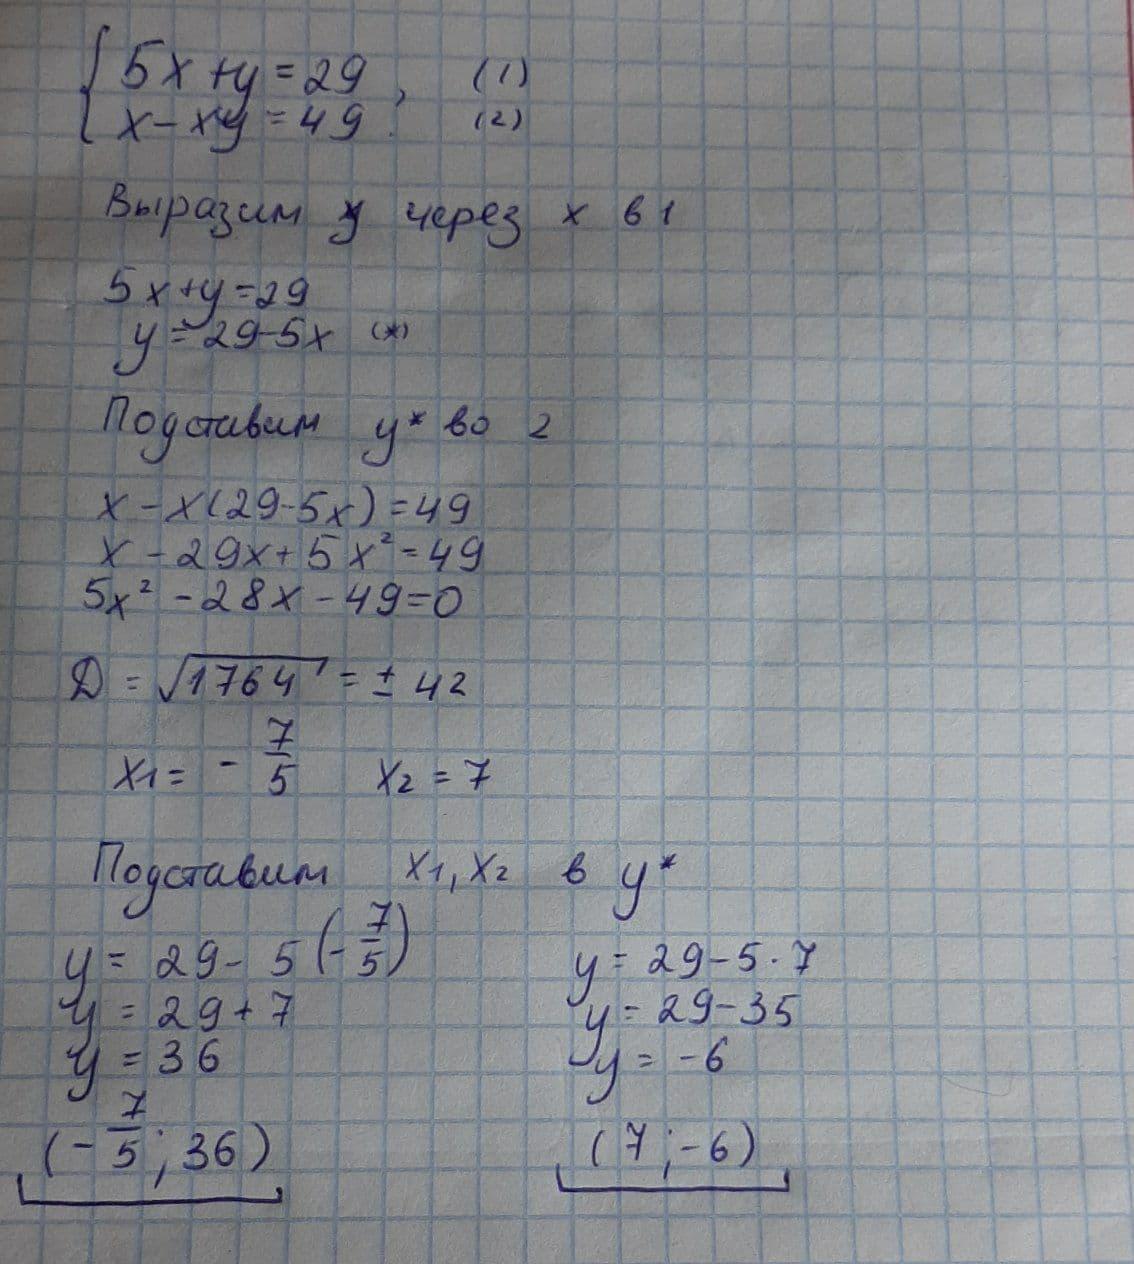 5x+y=29, (1)
x-xy=49. (2)
Выразим y через x в 1
5x+y=29
y=29-5x (*)
Подставим y* во 2
x-x(29-5x)=49
x-29x+5x²=49
5x²-28x-49=0
D=√1764=±42
x₁=-7/5 x₂=7
Подставим x₁, x₂ в y*
y=29-5(-7/5) y=29-5·7
y=29+7 y=29-35
y=36 y=-6
(-7/5;36) (7;-6)